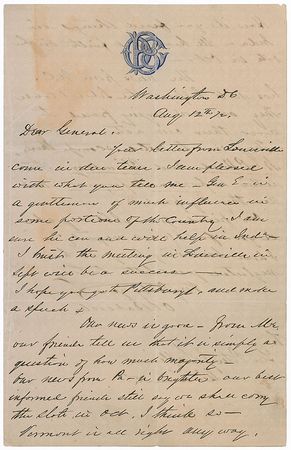 Washington DC
Aug. 12th 76.
Dear General.
Your letter from Louisville
came in due time - I am pleased
with what you tell me - Gen E - is
a gentleman of much influence in
some portions of the Country. I am
sure he can and will help in Ind.
I trust the meeting in Louisville in
Sept will be a success -
I hope you go to Pittsburgh, and make
a speech &
Our news is good - From Me.
our friends tell us that it is simply a
question of how much majority -
Our news from Pa - is brighter - our best
informed friends still say we shall carry
the state in Oct. I think so -
Vermont is all right any way.